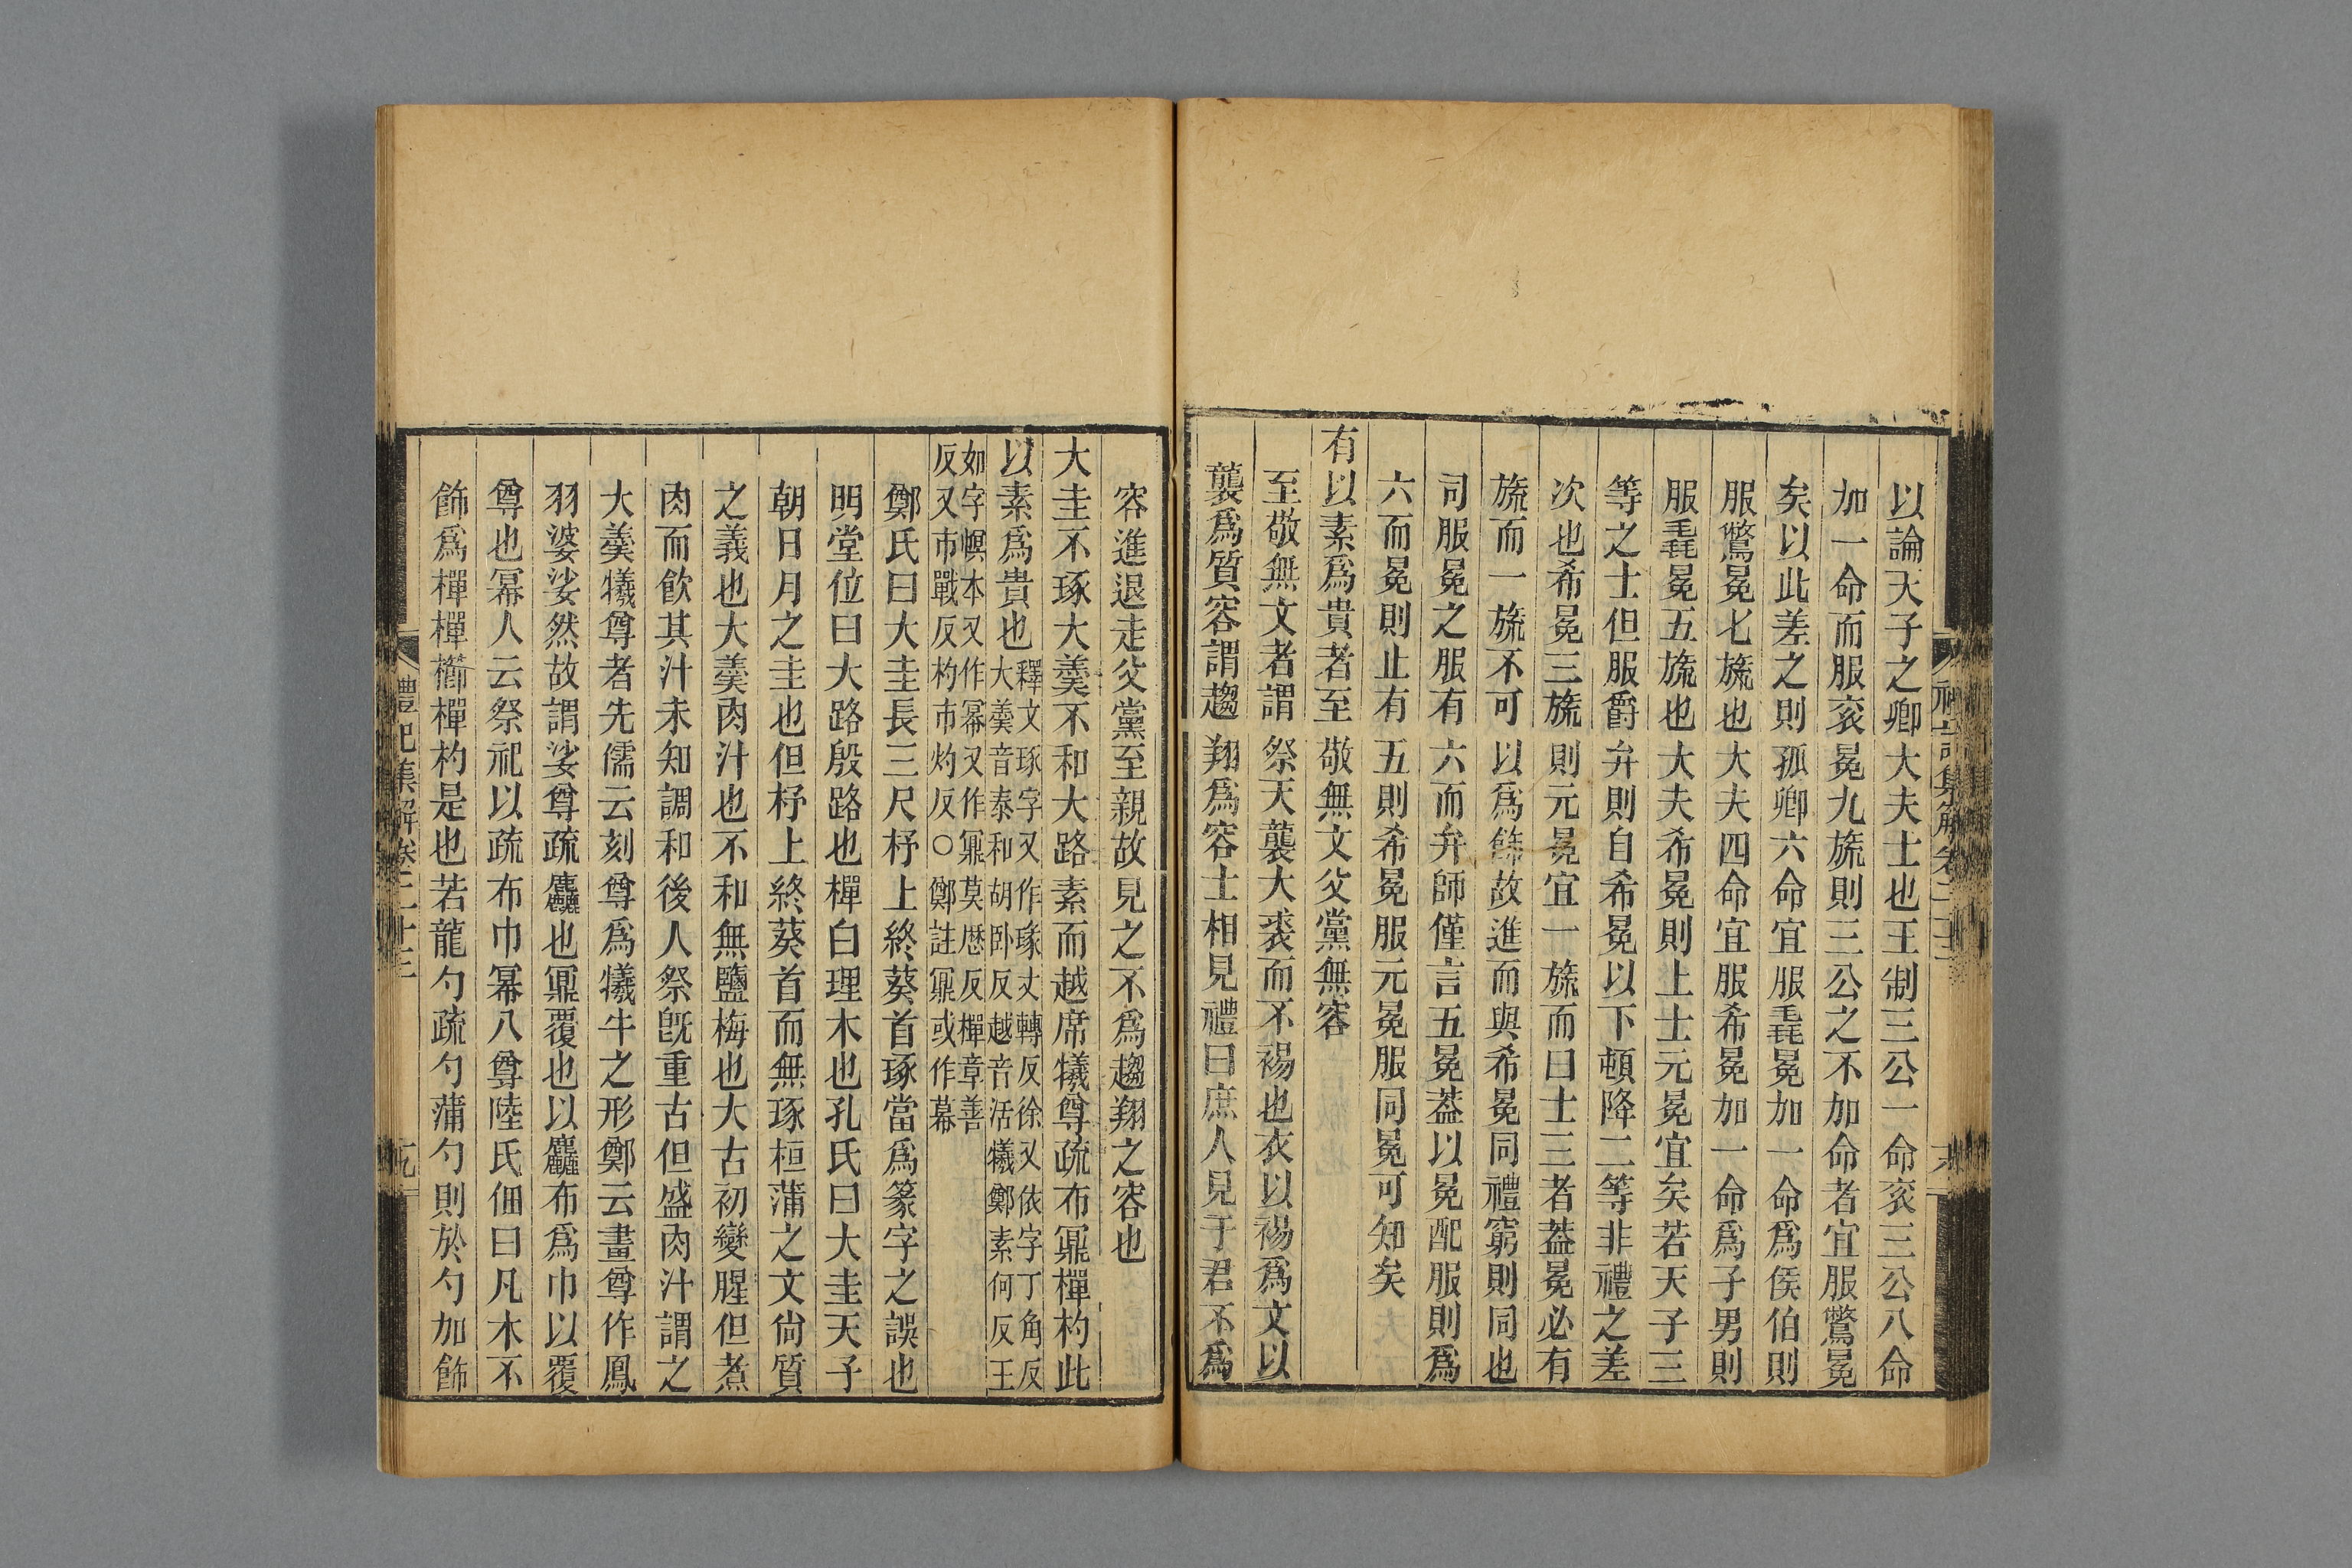 以論天子之卿大夫士也王制三公一命衮三公八命
加一命而服衮冕九旒則三公之不加命者宜服鷩冕
矣以此差之則孤卿六命宜服毳冕加一命爲侯伯則
服鷩冕七旒也大夫四命宜服希冕加一命爲子男則
服毳冕五旒也大夫希冕則上士元冕宜矣若天子三
等之士但服爵弁則自希冕以下頓降二等非禮之差
次也希冕三旒則元冕宜一旒而曰士三者蓋冕必有
旒而一旒不可以爲飾故進而與希冕同禮窮則同也
司服冕之服有六而弁師僅言五冕蓋以冕配服則爲
六而冕則止有五則希冕服元冕服同冕可知矣
有以素爲貴者至敬無文父黨無容
至敬無文者謂祭天襲大裘而不裼也衣以裼爲文以
襲爲質容謂趨翔爲容士相見禮曰庶人見于君不爲
容進退走父黨至親故見之不爲趨翔之容也
大圭不琢大羹不和大路素而越席犧尊疏布鼏樿杓此
以素爲貴也釋文琢字又作瑑丈轉反徐又依字丁角反
大羹音泰和胡卧反越音活犧鄭素何反王
如字幎本又作冪又作鼏莫歷反樿章善
反又市戰反杓市灼反○鄭註鼏或作幕
鄭氏曰大圭長三尺杼上終葵首琢當爲篆字之誤也
明堂位曰大路殷路也樿白理木也孔氏曰大圭天子
朝日月之圭也但杼上終葵首而無琢桓蒲之文尚質
之義也大羹肉汁也不和無鹽梅也大古初變腥但煮
肉而飲其汁未知調和後人祭旣重古但盛肉汁謂之
大羹犧尊者先儒云刻尊爲犧牛之形鄭云畫尊作鳳
羽婆娑然故謂娑尊疏麤也鼏覆也以麤布爲巾以覆
尊也冪人云祭祀以疏布巾冪八尊陸氏佃曰凡木不
飾爲樿樿櫛樿杓是也若龍勺疏勺蒲勺則於勺加飾
禮記集解卷二十三